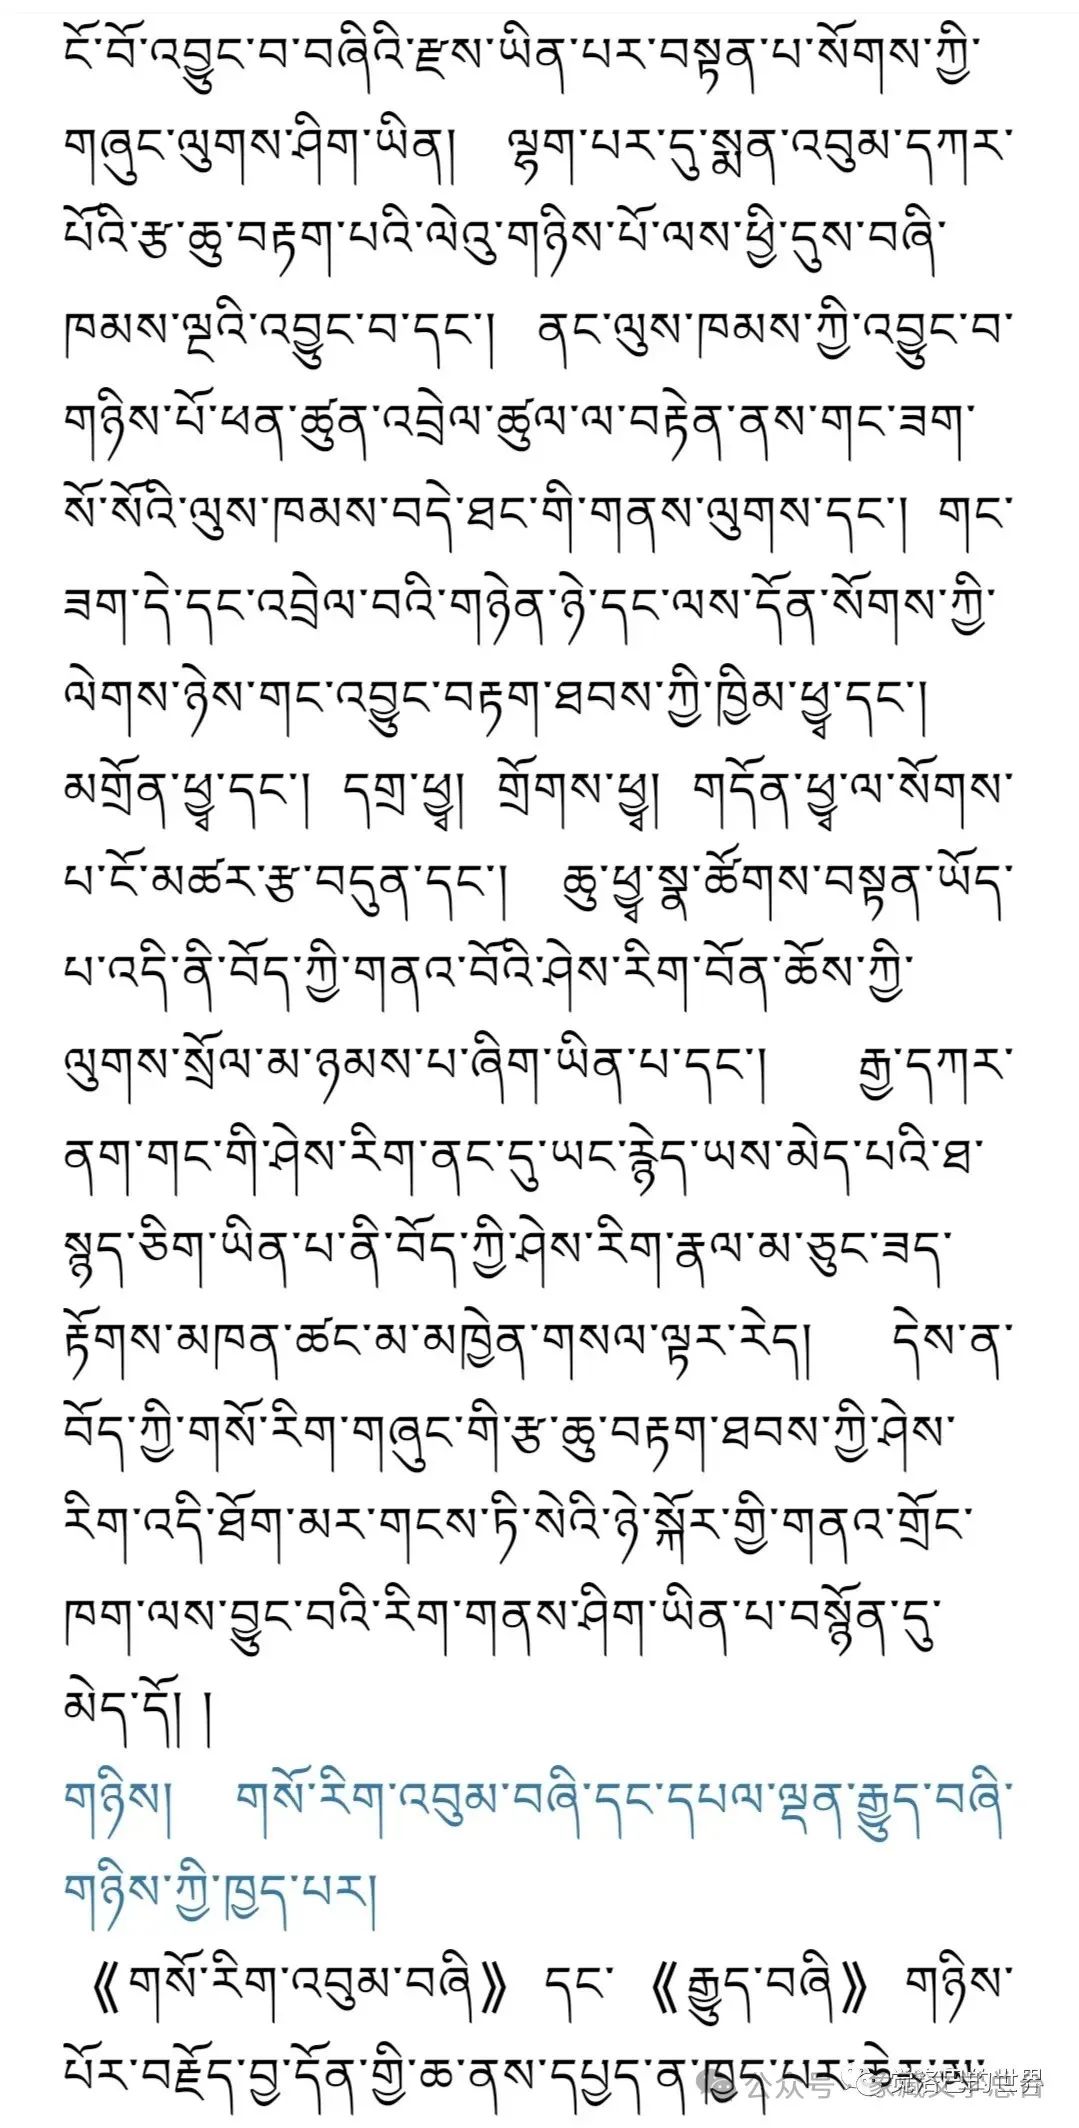 ངོ་བོ་འབྱུང་བ་བཞིའི་རྫས་ཡིན་པར་བསྟན་པ་སོགས་ཀྱི་
གཞུང་ལུགས་ཤིག་ཡིན། ལྷག་པར་དུ་སྨན་འབུམ་དཀར་
པོའི་རྩ་ཆུ་བརྟག་པའི་ལེའུ་གཉིས་པོ་ལས་ཕྱི་དུས་བཞི་
ཁམས་ལྔའི་འབྱུང་བ་དང་། ནང་ལུས་ཁམས་ཀྱི་འབྱུང་བ་
གཉིས་པོ་ཕན་ཚུན་འབྲེལ་ཚུལ་ལ་བརྟེན་ནས་གང་ཟག་
སོ་སོའི་ལུས་ཁམས་བདེ་ཐང་གི་གནས་ལུགས་དང་། གང་
ཟག་དེ་དང་འབྲེལ་བའི་གཉེན་ཉེ་དང་ལས་དོན་སོགས་ཀྱི་
ལེགས་ཉེས་གང་འབྱུང་བརྟག་ཐབས་ཀྱི་ཁྱིམ་ཕྱྭ་དང་།
མགྲོན་ཕྱྭ་དང་། དགྲ་ཕྱྭ། གྲོགས་ཕྱྭ། གདོན་ཕྱྭ་ལ་སོགས་
པ་ངོ་མཚར་རྩ་བདུན་དང་། ཆུ་ཕྱྭ་སྣ་ཚོགས་བསྟན་ཡོད་
པ་འདི་ནི་བོད་ཀྱི་གནའ་བོའི་ཤེས་རིག་བོན་ཆོས་ཀྱི་
ལུགས་སྲོལ་མ་ཉམས་པ་ཞིག་ཡིན་པ་དང་། རྒྱ་དཀར་
ནག་གང་གི་ཤེས་རིག་ནང་དུ་ཡང་རྙེད་ཡས་མེད་པའི་ཐ་
སྙད་ཅིག་ཡིན་པ་ནི་བོད་ཀྱི་ཤེས་རིག་རྣལ་མ་ཅུང་ཟད་
རྟོགས་མཁན་ཚང་མ་མཁྱེན་གསལ་ལྟར་རེད། དེས་ན་
བོད་ཀྱི་གསོ་རིག་གཞུང་གི་རྩ་ཆུ་བརྟག་ཐབས་ཀྱི་ཤེས་
རིག་འདི་ཐོག་མར་གངས་ཏི་སེའི་ཉེ་སྐོར་གྱི་གནའ་གྲོང་
ཁག་ལས་བྱུང་བའི་རིག་གནས་ཤིག་ཡིན་པ་བསྙོན་དུ་
མེད་དོ། །
གཉིས། གསོ་རིག་འབུམ་བཞི་དང་དཔལ་ལྡན་རྒྱུད་བཞི་
གཉིས་ཀྱི་ཁྱད་པར།
《གསོ་རིག་འབུམ་བཞི》 དང་ 《རྒྱུད་བཞི》 གཉིས་
པོར་བརྗོད་བྱ་དོན་གྱི་ཆ་ནས་དཔྱད་ན་ཁྱད་པར་
公众号
觉洛巴的世界